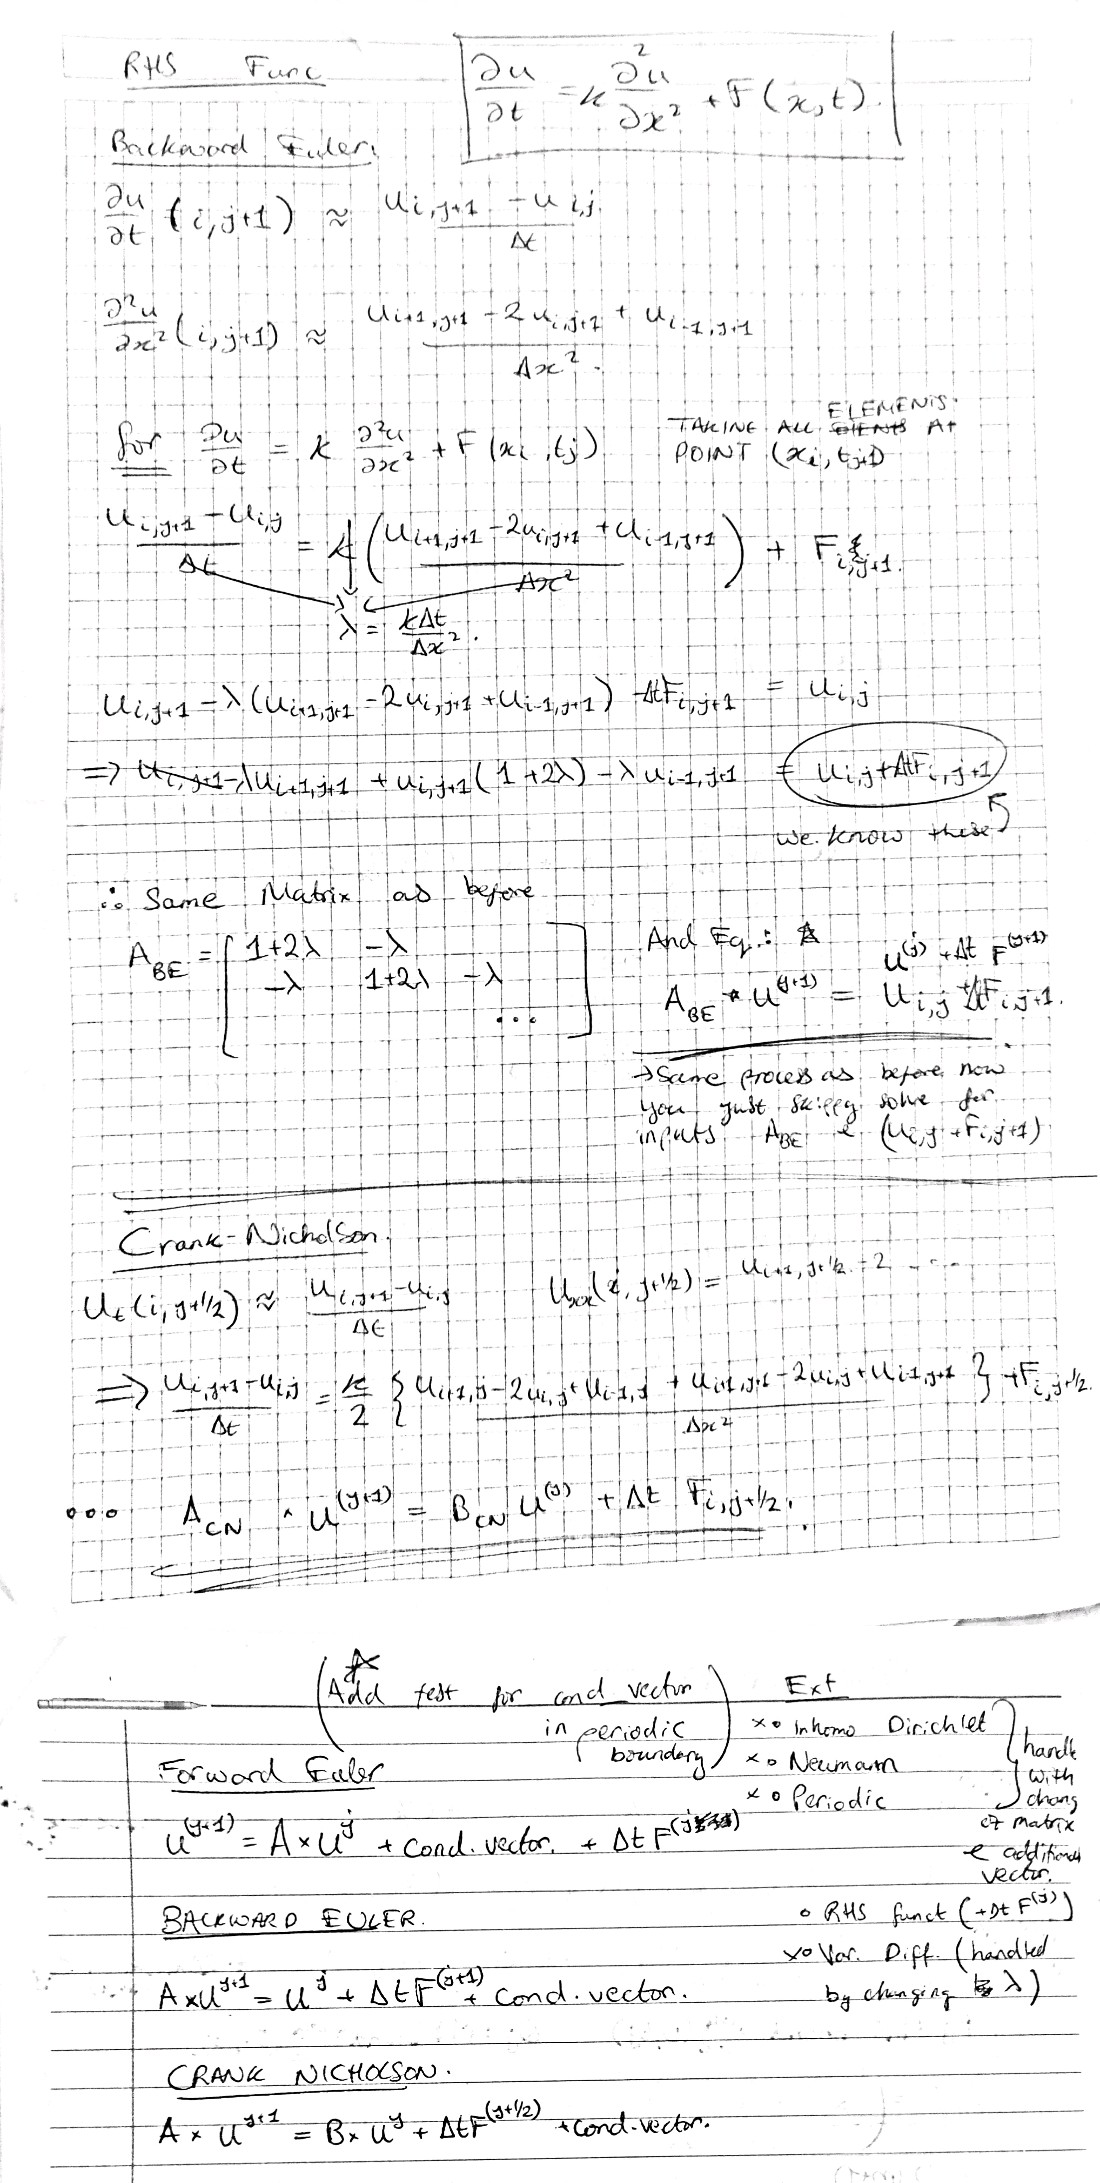 RHS Func
∂u/∂t = k ∂²u/∂x² + F(x,t).
Backward Euler:
∂u/∂t (i,j+1) ≈ (u_{i,j+1} - u_{i,j})/Δt
∂²u/∂x² (i,j+1) ≈ (u_{i+1,j+1} - 2u_{i,j+1} + u_{i-1,j+1})/Δx².
for ∂u/∂t = k ∂²u/∂x² + F(xi,tj)
TAKING ALL ELEMENTS AT
POINT (xi, tj+1)
(u_{i,j+1} - u_{i,j})/Δt = k((u_{i+1,j+1} - 2u_{i,j+1} + u_{i-1,j+1})/Δx²) + F_{i,j+1}.
λ = kΔt/Δx².
u_{i,j+1} - λ(u_{i+1,j+1} - 2u_{i,j+1} + u_{i-1,j+1}) - ΔtF_{i,j+1} = u_{i,j}
⇒ -λu_{i+1,j+1} + u_{i,j+1}(1+2λ) - λu_{i-1,j+1} = u_{i,j} + ΔtF_{i,j+1}
we know these
∴ Same Matrix as before
A_BE = [ 1+2λ -λ
-λ 1+2λ -λ
... ]
And Eq.:
u^(j) + Δt F^(j+1)
A_BE * u^(j+1) = u_{i,j} + ΔtF_{i,j+1}.
→ Same process as before now
you just solve for
inputs A_BE & (u_{i,j} + F_{i,j+1})
Crank-Nicholson
u_t(i,j+1/2) ≈ (u_{i,j+1} - u_{i,j})/Δt
u_xx(i,j+1/2) = u_{i+1,j+1/2} + 2 ....
⇒ (u_{i,j+1} - u_{i,j})/Δt = k/2 {(u_{i+1,j} - 2u_{i,j} + u_{i-1,j} + u_{i+1,j+1} - 2u_{i,j} + u_{i-1,j+1})/Δx²} + F_{i,j+1/2}.
∘∘∘ A_CN · u^(j+1) = B_CN u^(j) + Δt F_{i,j+1/2}.
(Add test for cond vector
in periodic
boundary)
Ext
x∘ Inhomo Dirichlet
x∘ Neumann
x∘ Periodic
handle
with
chang
of matrix
& additional
vector.
Forward Euler
u^(j+1) = A×u^j + cond. vector. + Δt F^(j)
∘ RHS funct (+Dt F^(j))
x∘ Var. Diff. (handled
by changing λ)
BACKWARD EULER.
A×u^{j+1} = u^j + ΔtF^(j+1) + cond. vector.
CRANK NICHOLSON.
A × u^{j+1} = B× u^j + ΔtF^(j+1/2) + cond. vector.